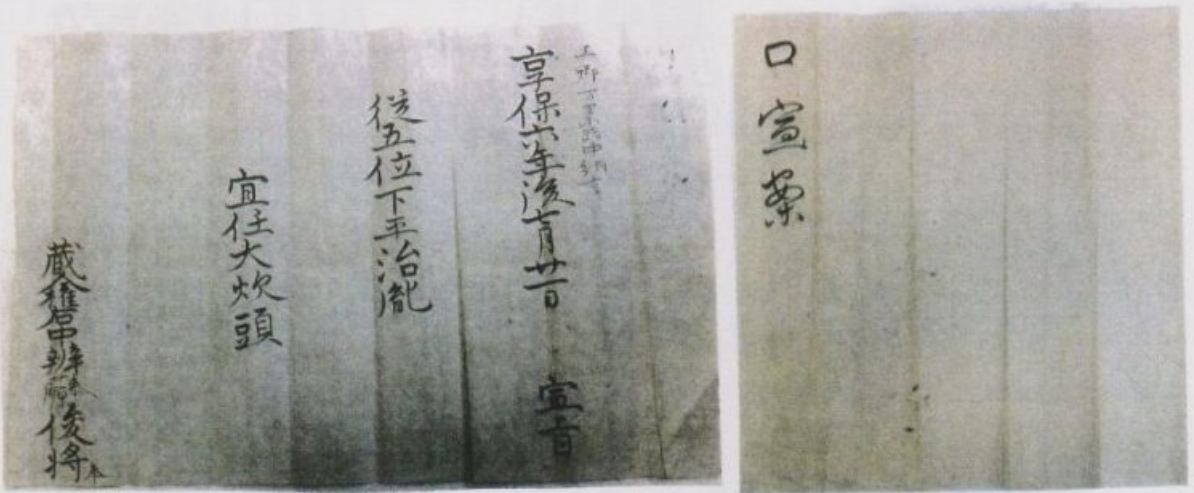 口宣案
上卿 万里小路中納言
享保六年後七月廿一日 宣旨
従五位下平治胤
宜任大炊頭
蔵人権右中辨藤原俊将奉